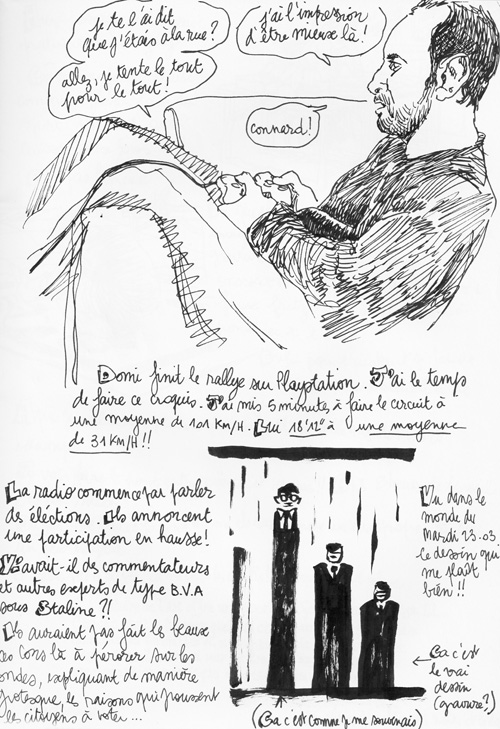 je te l'ai dit
que j'étais à la rue?
j'ai l'impression
d'être mieux là!
allez, je tente le tout
pour le tout!
connard!
Domi finit le rallye sur Playstation. J'ai le temps
de faire ce croquis. J'ai mis 5 minutes à faire le circuit à
une moyenne de 101 KM/H. Lui 18'12" à une moyenne
de 31 KM/H!!
La radio commence par parler
des éléctions. Ils annoncent
une participation en hausse!
Y avait-il des commentateurs
et autres experts de type B.V.A
sous Staline?!
Ils auraient pas fait les beaux
ces cons là à pérorer sur les
ondes, expliquant de manière
grotesque, les raisons qui poussent
les citoyens à voter...
Vu dans le
monde du
Mardi 23.03.
le dessin qui
me plaît
bien!!
Ça c'est
le vrai
dessin
(gravure?)
(Ça c'est comme je me souvenais)